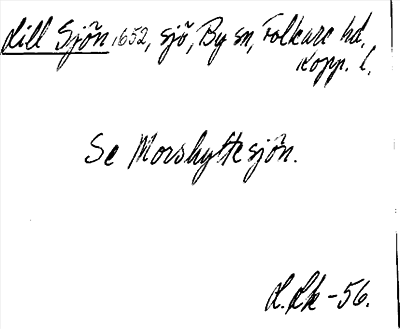 Lill Sjön 1652, sjö, By sn, Folkare hd,
Kopp. l.
Se Morshyttesjön.
L.Lk -56.